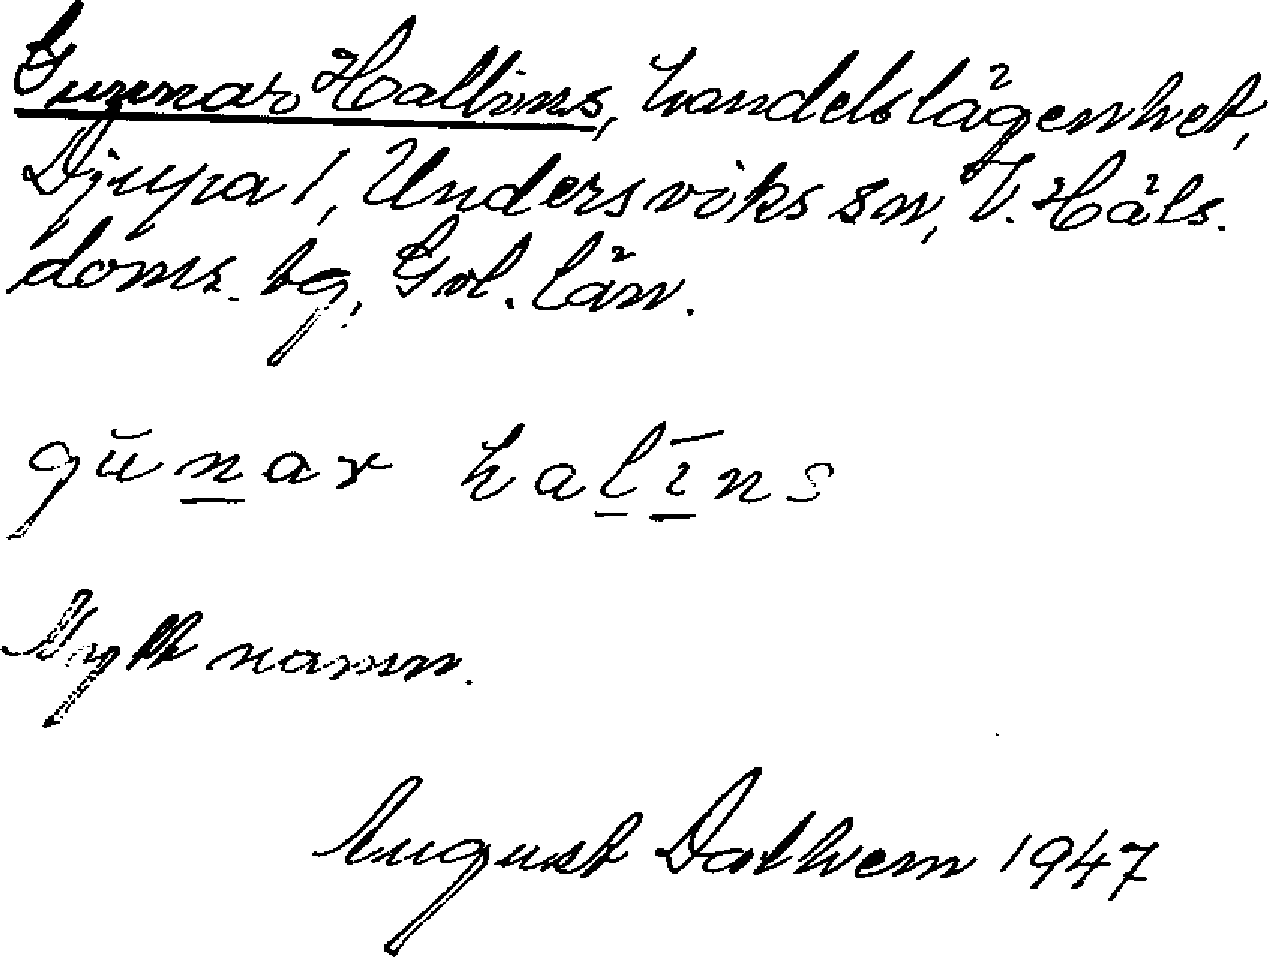 Gunnar Hallins, handelslägenhet,
Djupa 1, Undersviks sn, V. Häls.
doms. tg, Gvl. län.
gŭnar halīns
Nytt namn.
August Dathem 1947